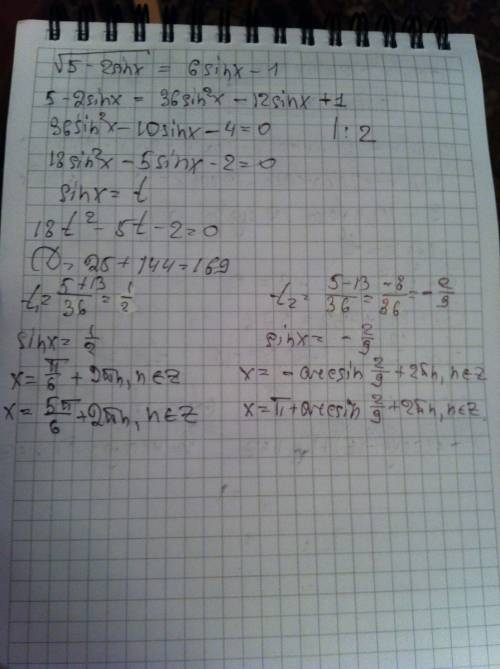 √5-2sinx = 6sinx-1
5-2sinx = 36sin²x-12sinx+1
36sin²x-10sinx-4=0 |:2
18sin²x-5sinx-2=0
sinx=t
18t²-5t-2=0
D=25+144=169
t₁=5+13/36=1/2
t₂=5-13/36=-8/36=-2/9
sinx=1/2
sinx=-2/9
x=π/6+2πn, n∈Z
x=-arcsin 2/9+2πn, n∈Z
x=5π/6+2πn, n∈Z
x=π+arcsin 2/9+2πn, n∈Z